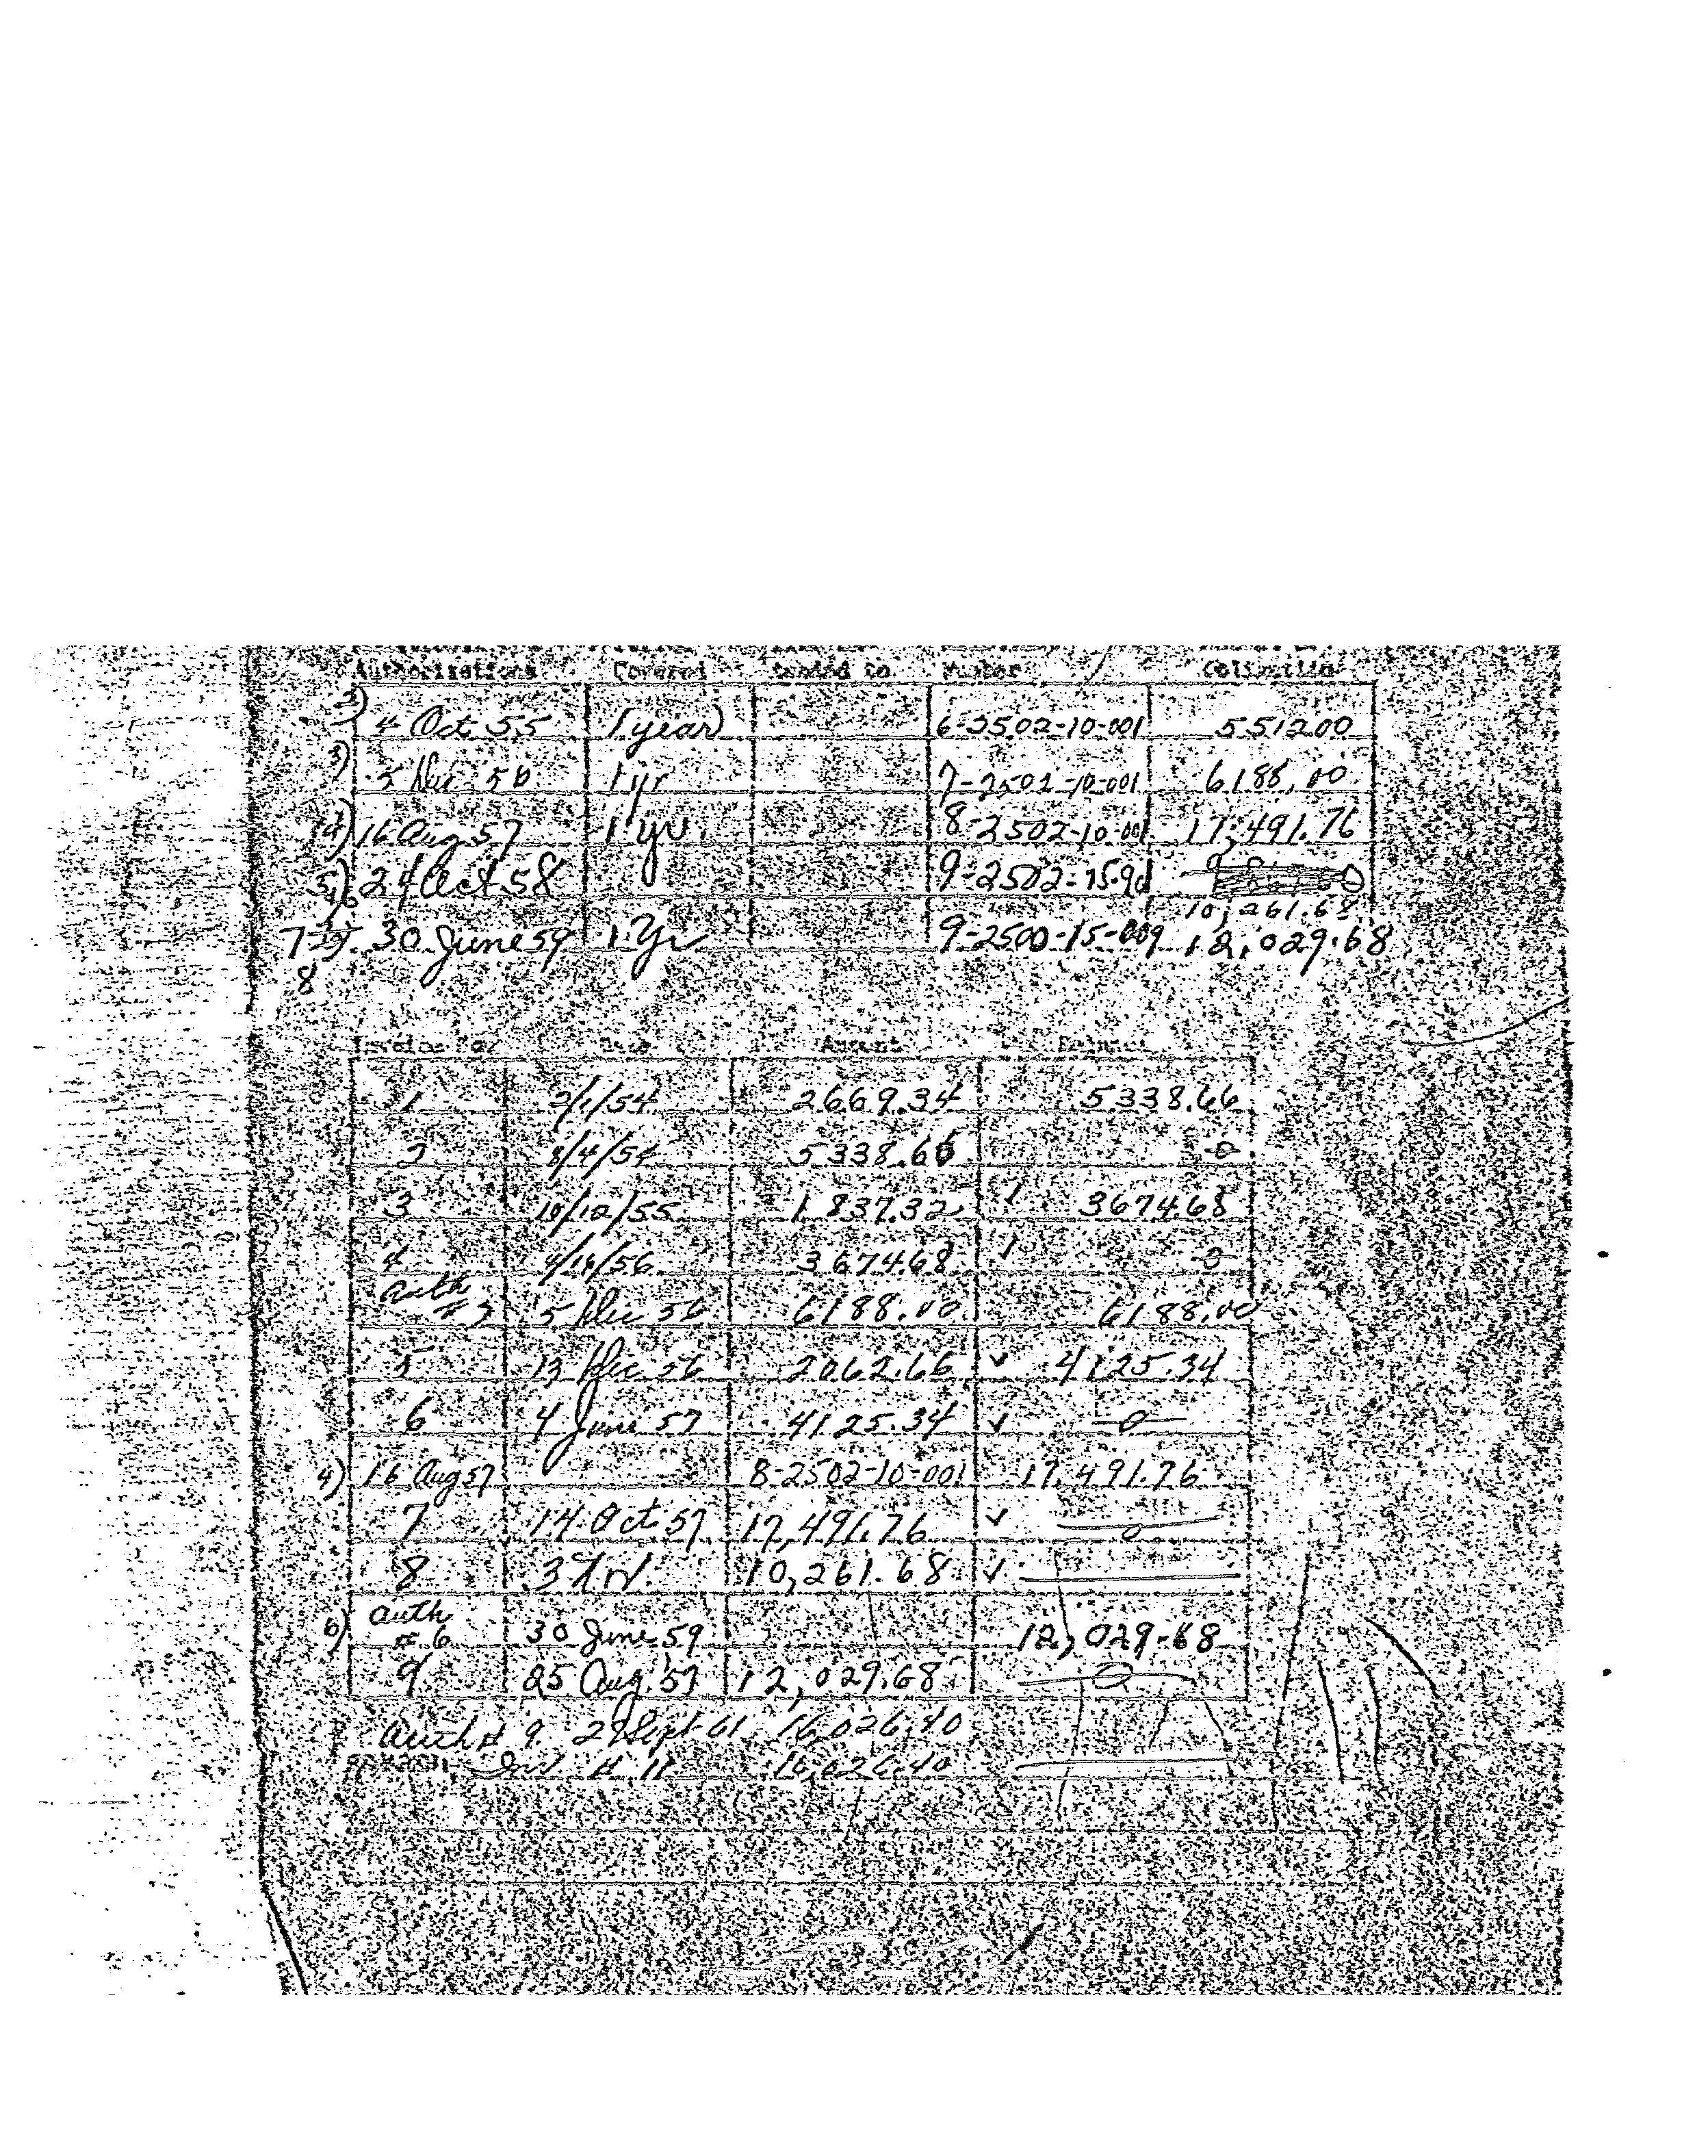 Authorizations Covered tended to Number Obligation
2) 4 Oct 55 1 year 6-2502-10-001 5512.00
3) 5 Dec 56 1 yr 7-2502-10-001 6188.00
4) 16 Aug 57 1 yr. 8-2502-10-001 17,491.76
5) 24 Oct 58 9-2502-15-901
10,261.68
30 June 59 1 Yr 9-2500-15-009 12,029.68
8
Invoice No. Date Amount Balance
1 2/1/54 2669.34 5338.66
2 8/4/54 5338.66 0
3 10/12/55 1837.32 ✓ 3674.68
4 4/16/56 3674.68 ✓ 0
auth
# 3 5 Dec 56 6188.00 6188.00
5 13 Dec 56 2062.66 ✓ 4125.34
6 4 June 57 4125.34 ✓ 0
4) 16 Aug 57 8-2502-10-001 17,491.76
7 14 Oct 57 17,491.76 ✓ 0
8 10,261.68 ✓
6) auth
# 6 30 June 59 12,029.68
9 25 Aug. 59 12,029.68 0
Auth # 9 29 Sept 61 16,026.40
Inv # 11 16,026.40